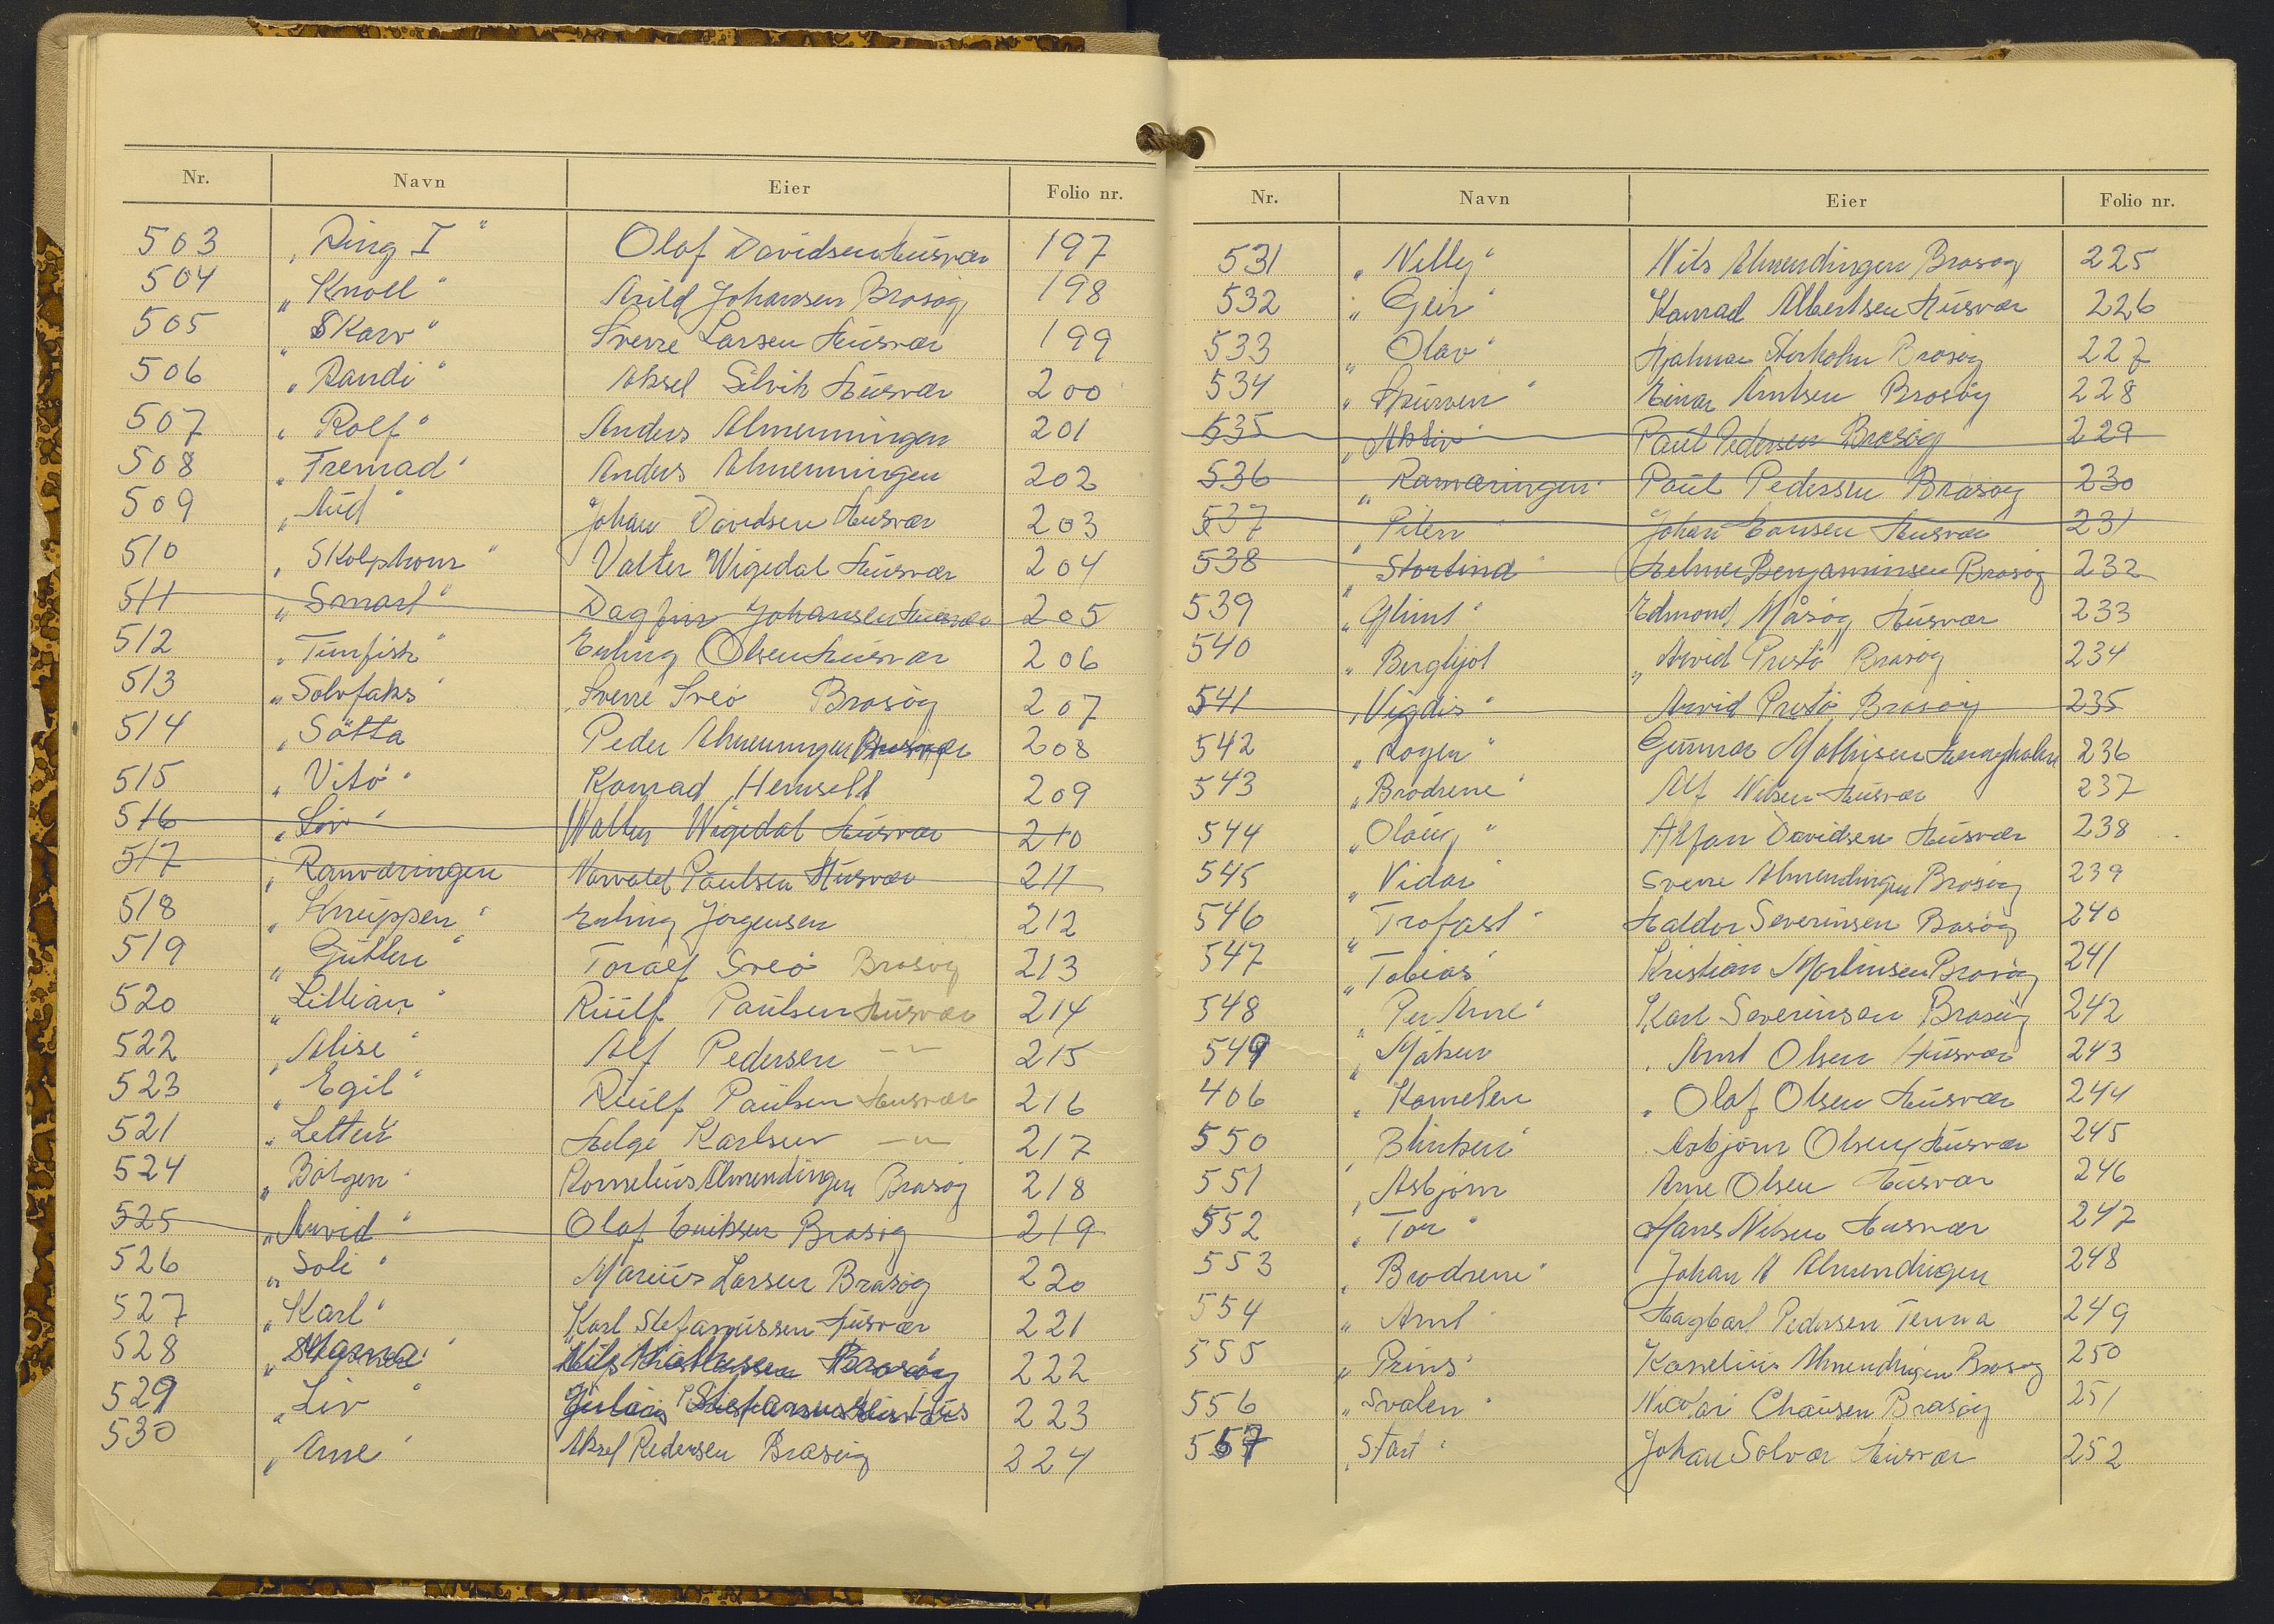 Nr. Navn Eier Folio nr.
503 „Ring I“ Olaf Davidsen Husvær 197
504 „Knoll“ Arild Johansen Brasøy 198
505 „Skarv“ Sverre Larsen Husvær 199
506 „Randi“ Aksel Silvik Husvær 200
507 „Rolf“ Anders Almenningen 201
508 „Fremad“ Anders Almenningen 202
509 „Aud“ Johan Davidsen Husvær 203
510 „Skolphorn“ Valter Wigedal Husvær 204
511 „Smart“ Dagfin Johansen Husvær 205
512 „Tunfisk“ Erling Olsen Husvær 206
513 „Solvfaks“ Sverre Sveo Brasøy 207
514 „Søtta Peder Almenningen 208
515 „Vito“ Konrad Hemselt 209
516 „Liv“ Walter Wigedal Husvær 210
517 „Ranværingen Norvald Paulsen Husvær 211
518 „Knuppen“ Erling Jørgensen 212
519 „Gutten“ Toralf Sveo Brasøy 213
520 „Lillian“ Ruulf Paulsen Husvær 214
522 „Alise“ Alf Pedersen —"— 215
523 „Egil“ Ruulf Paulsen Husvær 216
521 „Letten“ Helge Karlsen —"— 217
524 „Bølgen“ Kornelius Almendingen Brasøy 218
525 „Arvid“ Olaf Eriksen Brasøy 219
526 „Soli“ Marius Larsen Brasøy 220
527 „Karl“ Karl Stefanussen Husvær 221
528 Nils Brasøy 222
529 „Liv“ Julius 223
530 „Arne“ Aksel Pedersen Brasøy 224
Nr. Navn Eier Folio nr.
531 „Nelly“ Nils Almendingen Brasøy 225
532 „Geir“ Konrad Albertsen Husvær 226
533 „Olav“ Hjalmar Storholm Brasøy 227
534 „Spurven“ Einar Arntsen Brasøy 228
535 „Aktiv“ Paul Pedersen Brasøy 229
536 „Ramæringen“ Paul Pedersen Brasøy 230
537 „Piten“ Johan Hansen Husvær 231
538 „Storlind“ Helmer Benjaminsen Brasøy 232
539 „Glimt“ Edmond Måsøy Husvær 233
540 „Bergljot „Arvid Prestø Brasøy 234
541 „Vigdis“ Arvid Prestø Brasøy 235
542 „Rogen“ Gunnar Mathisen 236
543 „Brødrene“ Alf Nilsen Husvær 237
544 „Olaug“ Alfon Davidsen Husvær 238
545 „Vidar“ Sverre Almendingen Brasøy 239
546 „Trofast“ Haldor Severinsen Brasøy 240
547 „Tobias“ Kristian Martinsen Brasøy 241
548 „Per Arne“ Karl Severinsen Brasøy 242
549 „Måken Arnt Olsen Husvær 243
406 „Kamelen Olaf Olsen Husvær 244
550 „Blinken“ Asbjørn Olsen Husvær 245
551 „Asbjørn Arne Olsen Husvær 246
552 „Tor“ Hans Nilsen Husvær 247
553 „Brødrene“ Johan A Almendingen 248
554 „Arnt“ Hagbart Pedersen Tenna 249
555 „Prins“ Kornelius Almendingen Brasøy 250
556 „Svalen“ Nicolai Chausen Brasøy 251
557 „Start“ Johan Solvær Husvær 252